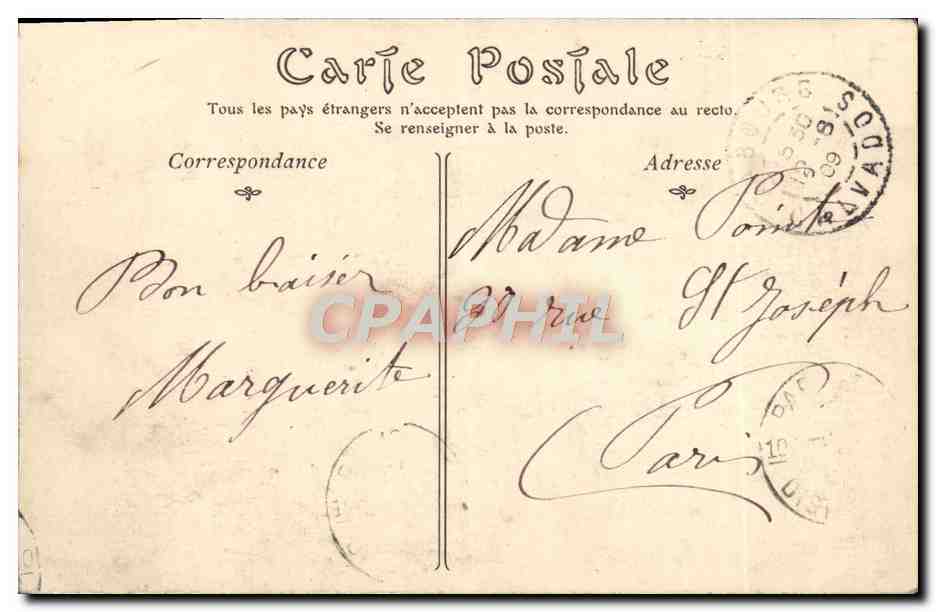 Carte Postale
Tous les pays étrangers n'acceptent pas la correspondance au recto.
Se renseigner à la poste.
Correspondance
Adresse
Bon baiser
Marguerite
Madame Pointe
rue St Joséph
Paris
CPAPHIL
09
PAR
DIST
10